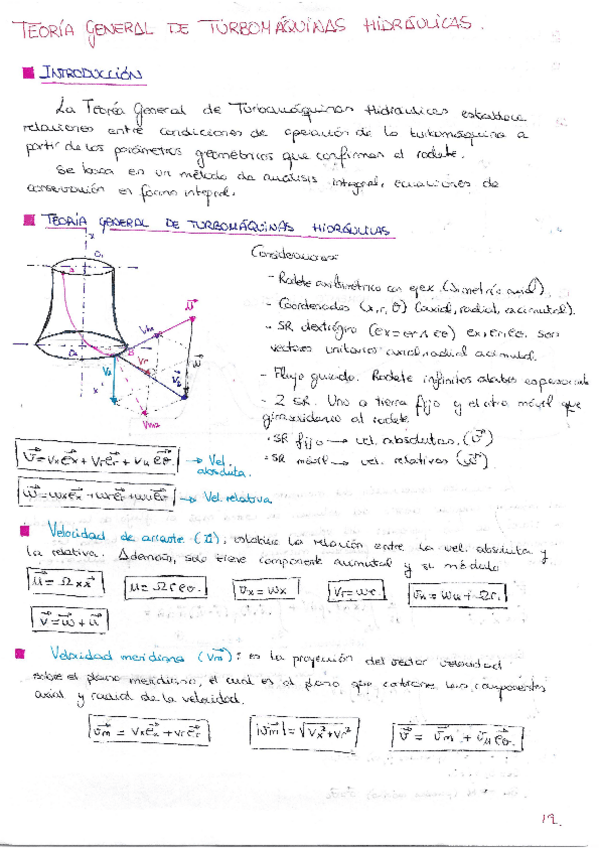 TEORÍA GENERAL DE TURBOMÁQUINAS HIDRÁULICAS.
INTRODUCCIÓN
La Teoría General de Turbomáquinas Hidraulicas establece
relaciones entre condiciones de operación de la turbomáquina a
partir de los parámetros geométricos que conforman el rodete.
Se basa en un método de análisis integral, ecuaciones de
conservación en forma integral.
TEORÍA GENERAL DE TURBOMÁQUINAS HIDRÁULICAS
Consideraciones
- Rodete axilsimétrico con eje x. (simetría axial).
- Coordenadas (x,r,θ) (axial, radial, azimutal).
- SR dextrógiro (ex=er∧eθ) ex,er,eθ son
vectores unitarios axial, radial azimutal.
- Flujo guiado. Rodete infinitos álabes
- 2 SR. Uno a tierra fijo y el otro móvil que
gira solidario al rodete.
· SR fijo → vel. absolutas. (v⃗)
· SR móvil → vel. relativas (w⃗)
v⃗ = vx e⃗x + vr e⃗r + vu e⃗θ. → Vel. absoluta.
w⃗ = wx e⃗x + wr e⃗r + wu e⃗θ → Vel. relativa
Velocidad de arrastre (u⃗): establece la relación entre la vel. absoluta y
la relativa. Además, solo tiene componente azimutal y su módulo
u⃗ = Ω⃗ x x⃗ u = Ω r eθ. vx = wx vr = wr. vu = wu + Ωr.
v⃗ = w⃗ + u⃗
Velocidad meridiana (v⃗m): es la proyección del vector velocidad
sobre el plano meridiano, el cual es el plano que contiene las componentes
axial y radial de la velocidad.
v⃗m = vx e⃗x + vr e⃗r |v⃗m| = √vx²+vr² v⃗ = v⃗m + vu e⃗θ.